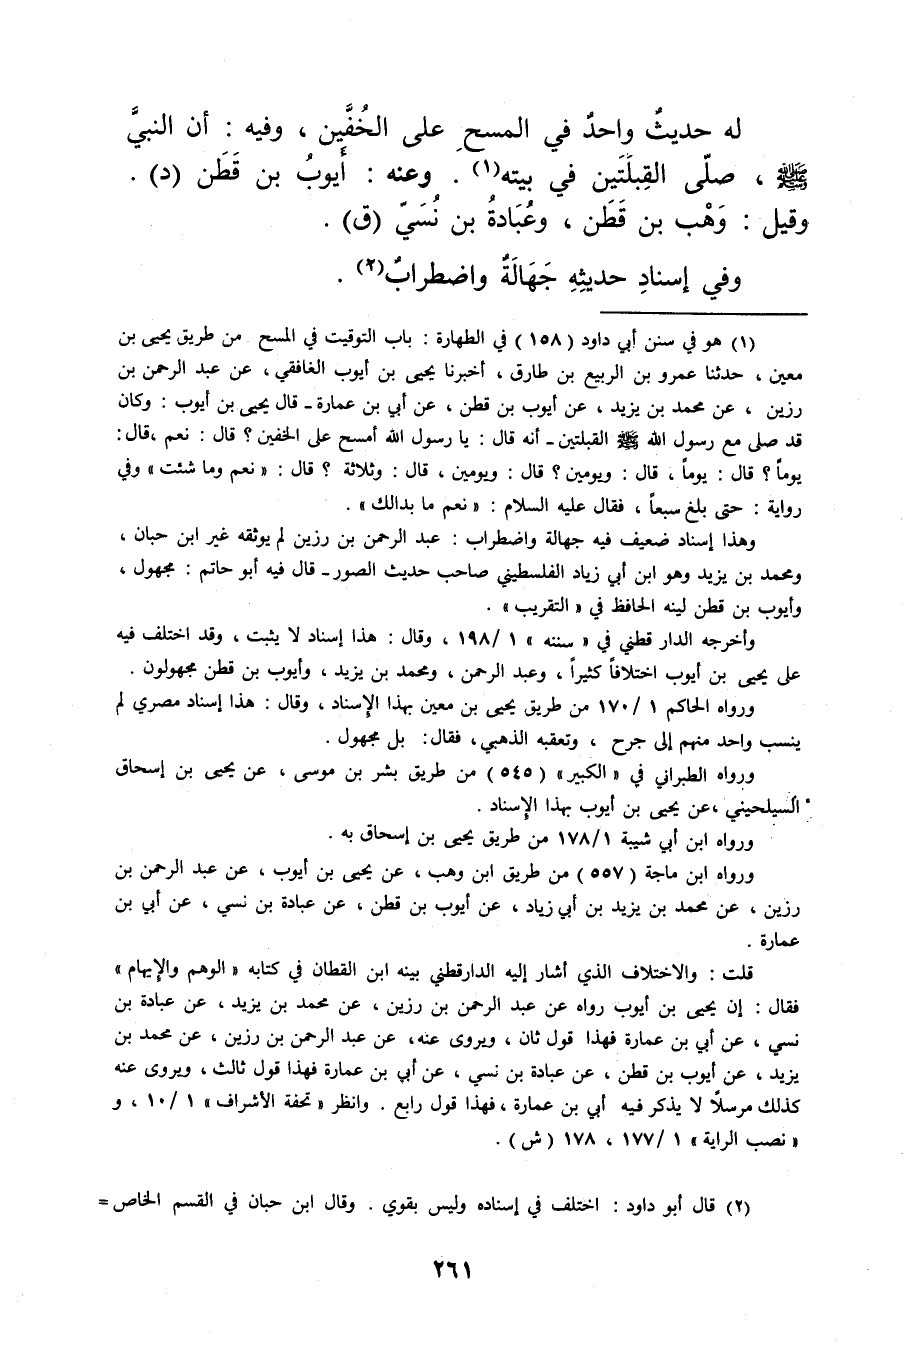 له حديثٌ واحدٌ في المسحِ على الخُفَّين ، وفيه : أن النبيَّ
ﷺ ، صلّى القِبلَتَين في بيته(١) . وعنه : أيوبُ بن قَطَن (د) .
وقيل : وَهْب بن قَطَن ، وعُبَادةُ بن نُسَيّ (ق) .
وفي إسنادِ حديثِهِ جَهَالَةٌ واضطرابٌ(٢) .
(١) هو في سنن أبي داود ( ١٥٨ ) في الطهارة : باب التوقيت في المسح من طريق يحيى بن
معين ، حدثنا عمرو بن الربيع بن طارق ، أخبرنا يحيى بن أيوب الغافقي ، عن عبد الرحمن بن
رزين ، عن محمد بن يزيد ، عن أيوب بن قطن ، عن أبي بن عمارة ـ قال يحيى بن أيوب : وكان
قد صلى مع رسول الله ﷺ القبلتين ـ أنه قال : يا رسول الله أمسح على الخفين ؟ قال : نعم ، قال :
يوماً ؟ قال : يوماً ، قال : ويومين ؟ قال : ويومين ، قال : وثلاثة ؟ قال : « نعم وما شئت » وفي
رواية : حتى بلغ سبعاً ، فقال عليه السلام : « نعم ما بدالك » .
وهذا إسناد ضعيف فيه جهالة واضطراب : عبد الرحمن بن رزين لم يوثقه غير ابن حبان ،
ومحمد بن يزيد وهو ابن أبي زياد الفلسطيني صاحب حديث الصور ـ قال فيه أبو حاتم : مجهول ،
وأيوب بن قطن لينه الحافظ في « التقريب » .
وأخرجه الدار قطني في « سننه » ١ /١٩٨ ، وقال : هذا إسناد لا يثبت ، وقد اختلف فيه
على يحيى بن أيوب اختلافاً كثيراً ، وعبد الرحمن ، ومحمد بن يزيد ، وأيوب بن قطن مجهولون .
ورواه الحاكم ١ /١٧٠ من طريق يحيى بن معين بهذا الإسناد ، وقال : هذا إسناد مصري لم
ينسب واحد منهم إلى جرح ، وتعقبه الذهبي ، فقال: بل مجهول .
ورواه الطبراني في « الكبير » ( ٥٤٥ ) من طريق بشر بن موسى ، عن يحيى بن إسحاق
السيلحيني ، عن يحيى بن أيوب بهذا الإسناد .
ورواه ابن أبي شيبة ١٧٨/١ من طريق يحيى بن إسحاق به .
ورواه ابن ماجة ( ٥٥٧ ) من طريق ابن وهب ، عن يحيى بن أيوب ، عن عبد الرحمن بن
رزين ، عن محمد بن يزيد بن أبي زياد ، عن أيوب بن قطن ، عن عبادة بن نسي ، عن أبي بن
عمارة .
قلت : والاختلاف الذي أشار إليه الدارقطني بينه ابن القطان في كتابه « الوهم والإيهام »
فقال : إن يحيى بن أيوب رواه عن عبد الرحمن بن رزين ، عن محمد بن يزيد ، عن عبادة بن
نسي ، عن أبي بن عمارة فهذا قول ثان ، ويروى عنه، عن عبد الرحمن بن رزين ، عن محمد بن
يزيد ، عن أيوب بن قطن ، عن عبادة بن نسي ، عن أبي بن عمارة فهذا قول ثالث ، ويروى عنه
كذلك مرسلًا لا يذكر فيه أبي بن عمارة ، فهذا قول رابع . وانظر « تحفة الأشراف » ١ /١٠ ، و
« نصب الراية » ١ /١٧٧ ، ١٧٨ ( ش ) .
(٢) قال أبو داود : اختلف في إسناده وليس بقوي . وقال ابن حبان في القسم الخاص =
٢٦١